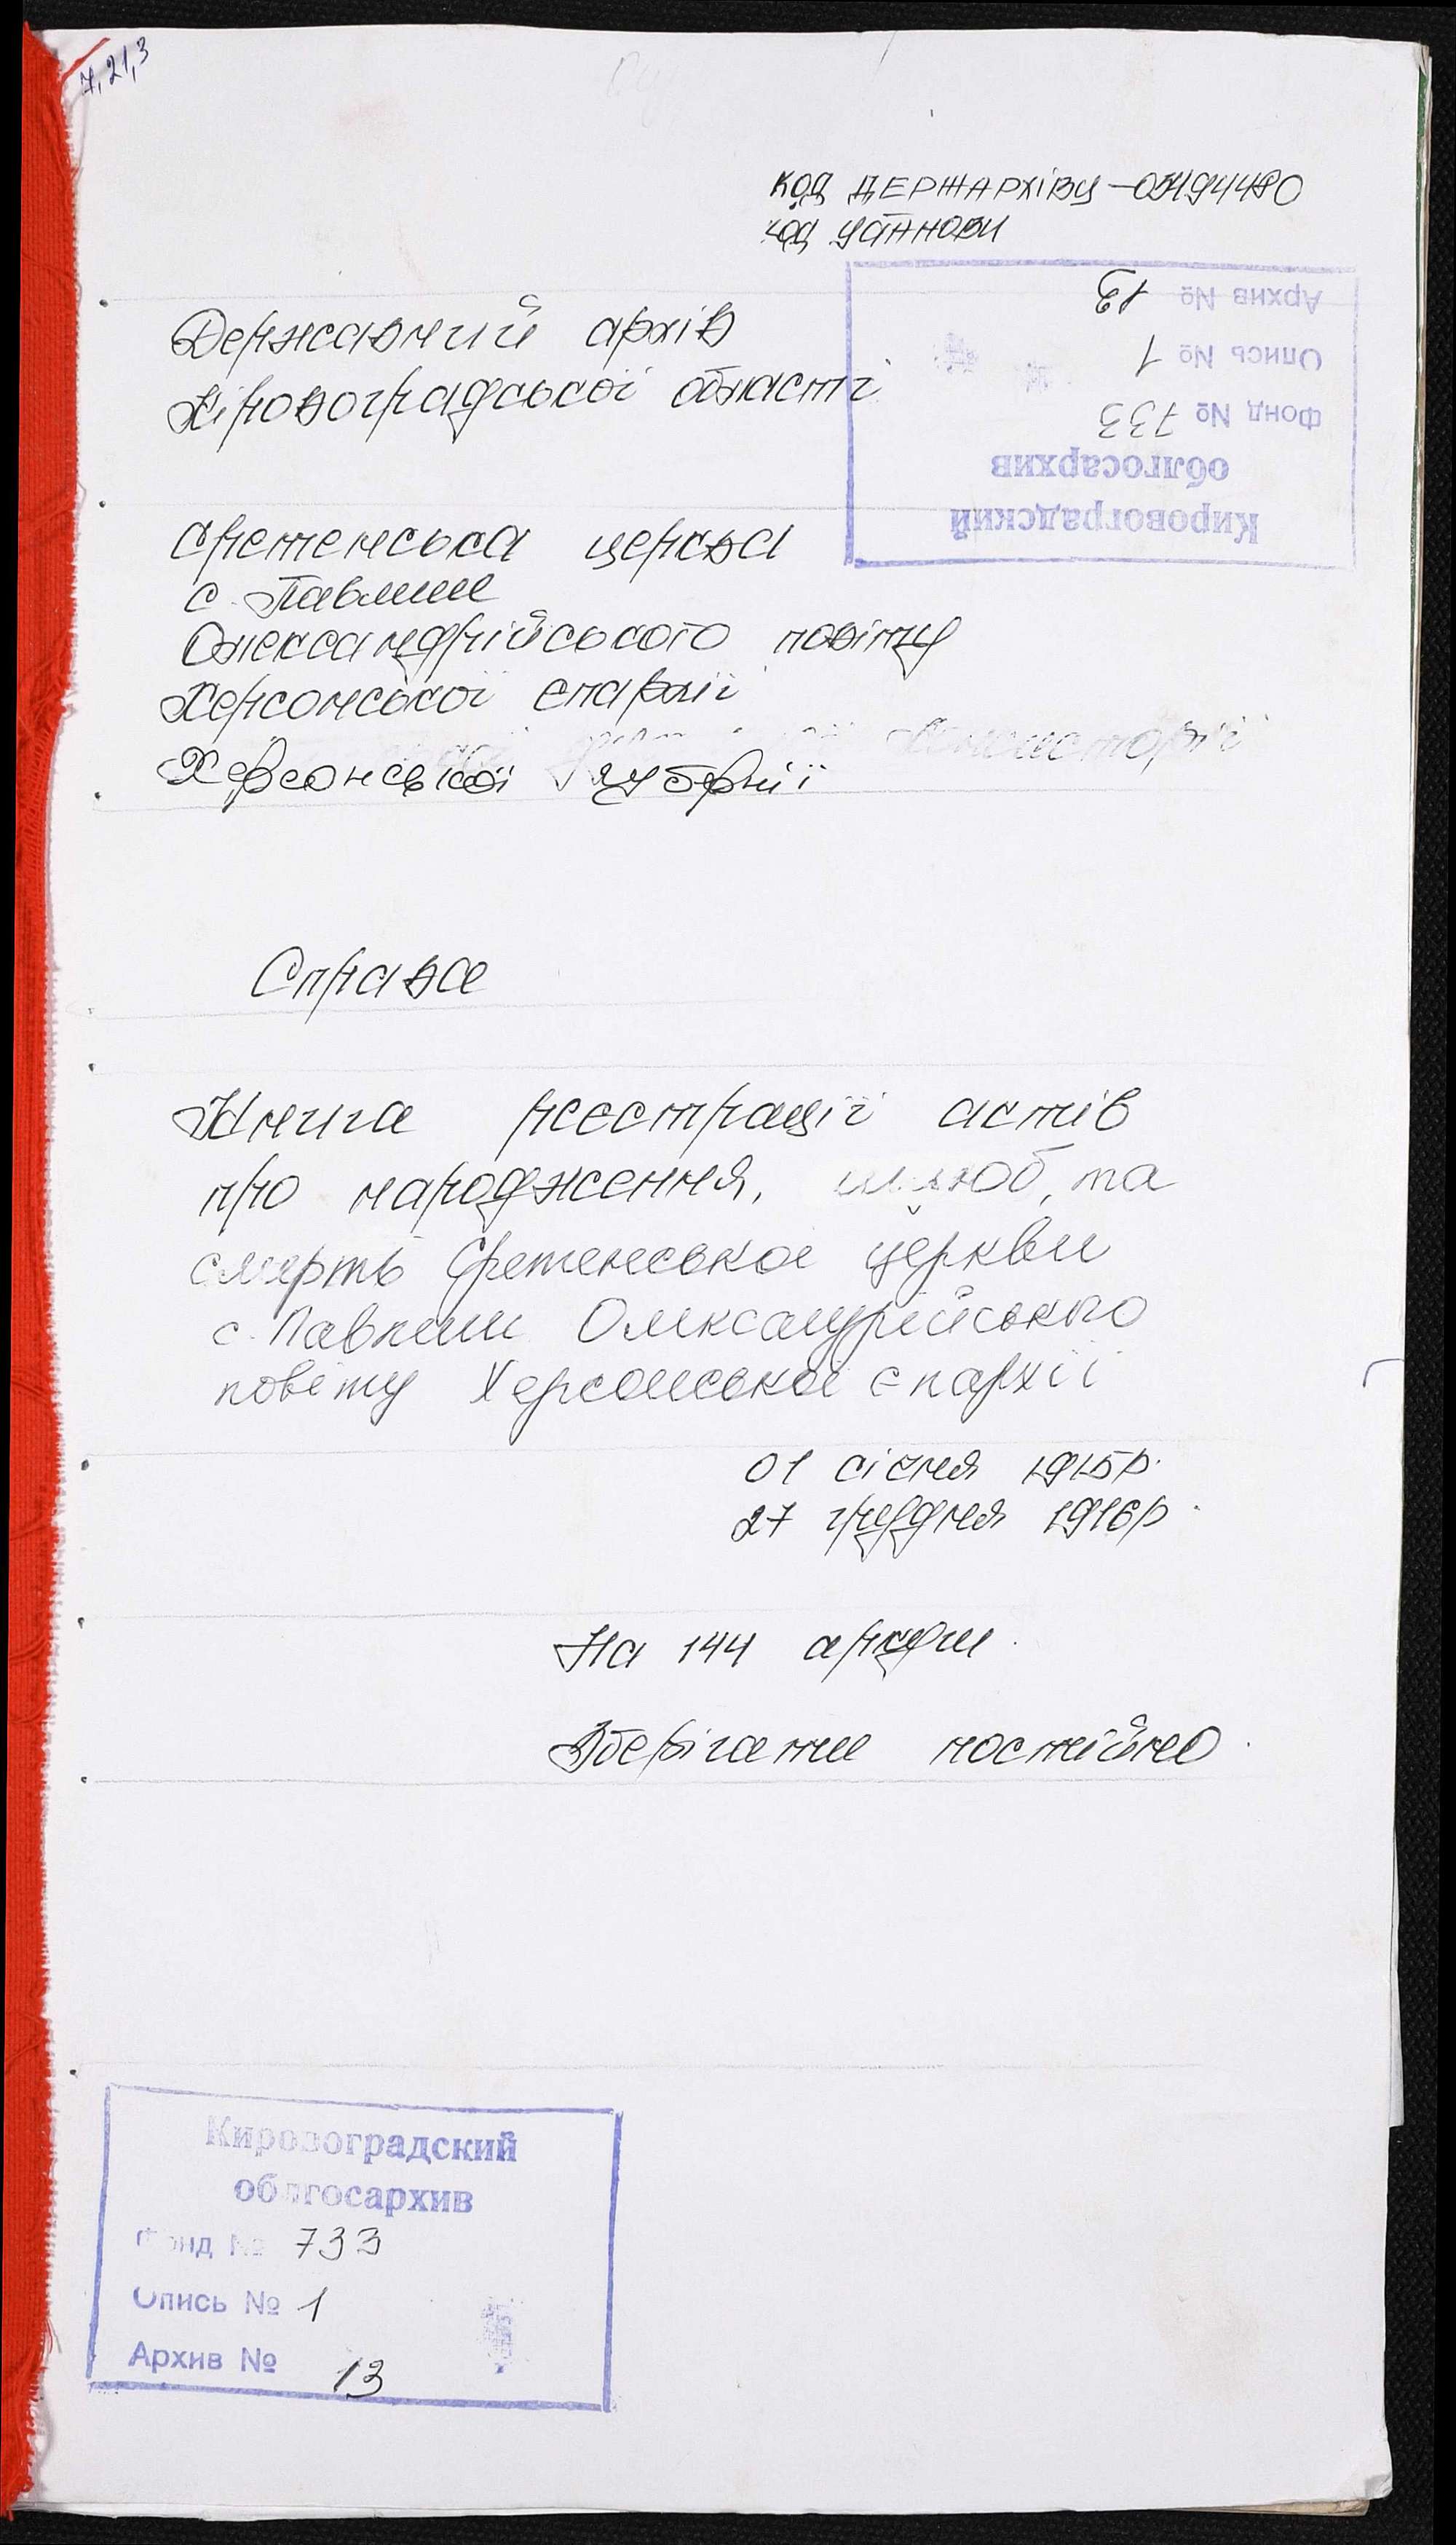 7, 21, 3
код ДЕРЖАРХІВУ –
код УСТАНОВИ
Архив № 13
Опись № 1
Фонд № 733
облгосархив
Кировоградский
Державний архів
Кіровоградської області
Сретенська церква
с. Павлиш
Олександрійського повіту
Херсонської єпархії
консисторії
Херсонської губернії
Справа
Книга реєстрації актів
про народження, шлюб, та
смерть Сретенської церкви
с. Павлиш Олександрійського
повіту Херсонської єпархії
01 січня 1915р.
27 грудня 1916р.
На 144 аркуш.
Зберігати постійно.
Кировоградский
облгосархив
Фонд № 733
Опись № 1
Архив № 13